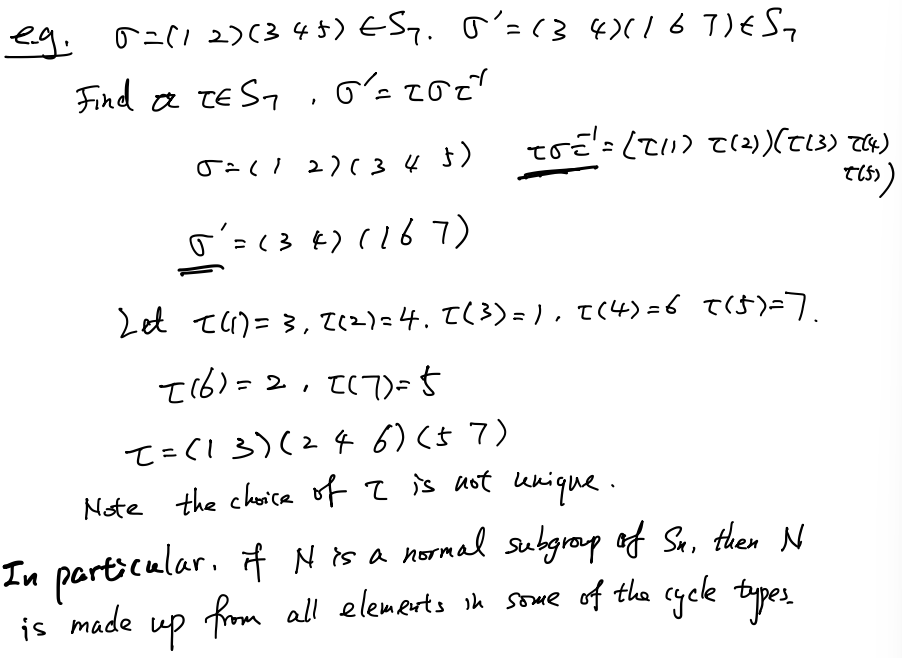 e.g. σ=(1 2)(3 4 5) ∈ S₇. σ'=(3 4)(1 6 7) ∈ S₇
Find a τ∈S₇, σ'=τστ⁻¹
σ=(1 2)(3 4 5) τστ⁻¹=(τ(1) τ(2))(τ(3) τ(4)
τ(5))
σ'=(3 4)(1 6 7)
Let τ(1)=3, τ(2)=4. τ(3)=1, τ(4)=6 τ(5)=7.
τ(6)=2, τ(7)=5
τ=(1 3)(2 4 6)(5 7)
Note the choice of τ is not unique.
In particular. if N is a normal subgroup of Sₙ, then N
is made up from all elements in some of the cycle types.